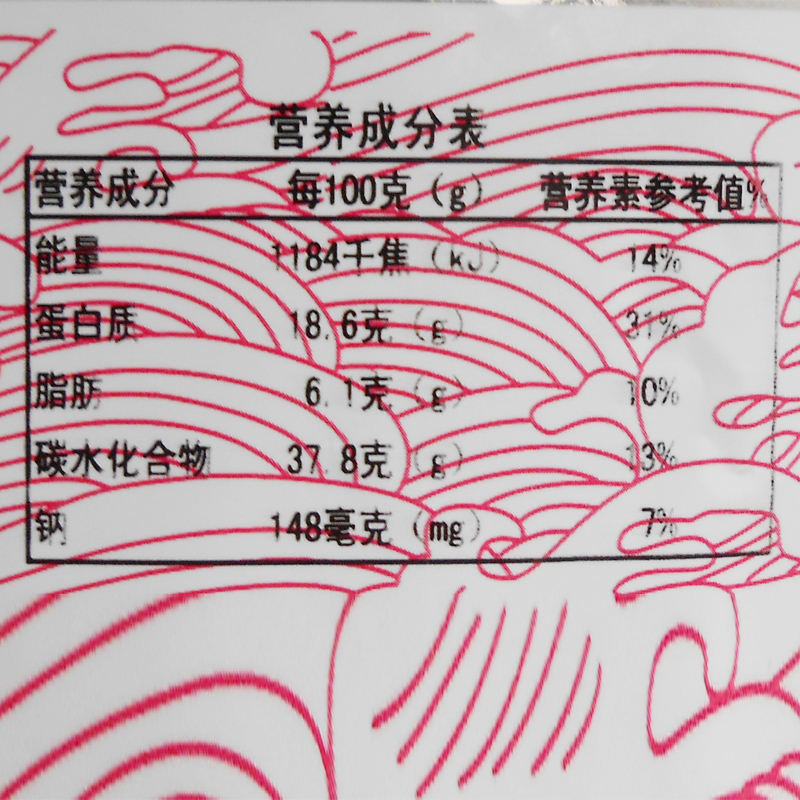 营养成分表
营养成分 每100克（g） 营养素参考值%
能量 1184千焦（kJ） 14%
蛋白质 18.6克（g） 31%
脂肪 6.1克（g） 10%
碳水化合物 37.8克（g） 13%
钠 148毫克（mg） 7%